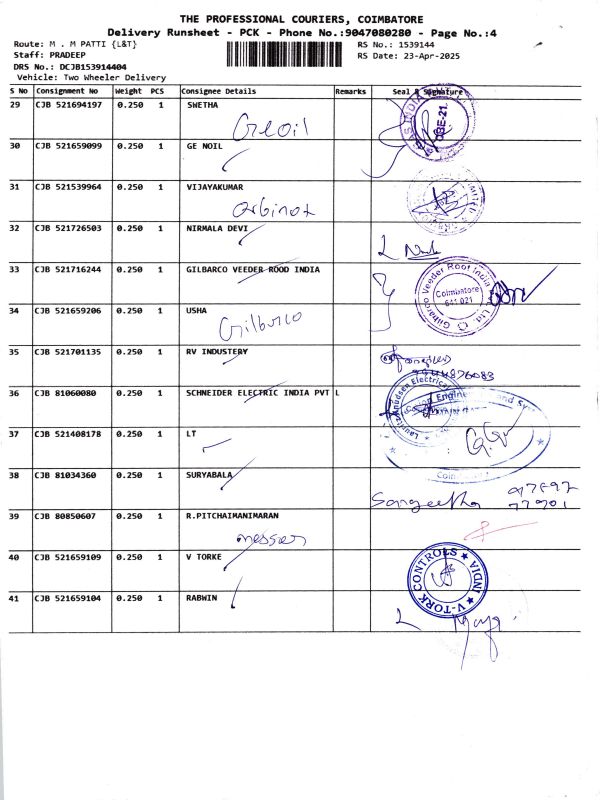 THE PROFESSIONAL COURIERS, COIMBATORE
Delivery Runsheet - PCK - Phone No.:9047080280 - Page No.:4
Route: M . M PATTI {L&T}
RS No.: 1539144
Staff: PRADEEP
RS Date: 23-Apr-2025
DRS No.: DCJB153914404
Vehicle: Two Wheeler Delivery
S No Consignment No Weight PCS Consignee Details Remarks Seal & Signature
29 CJB 521694197 0.250 1 SWETHA
30 CJB 521659099 0.250 1 GE NOIL
31 CJB 521539964 0.250 1 VIJAYAKUMAR
32 CJB 521726503 0.250 1 NIRMALA DEVI
33 CJB 521716244 0.250 1 GILBARCO VEEDER ROOD INDIA
Gilbarco Veeder Root India Pvt. Ltd.
Coimbatore
641 021
34 CJB 521659206 0.250 1 USHA
Gilburco
35 CJB 521701135 0.250 1 RV INDUSTERY
36 CJB 81060080 0.250 1 SCHNEIDER ELECTRIC INDIA PVT L
37 CJB 521408178 0.250 1 LT
38 CJB 81034360 0.250 1 SURYABALA
Sangeetha
39 CJB 80850607 0.250 1 R.PITCHAIMANIMARAN
messier
40 CJB 521659109 0.250 1 V TORKE
V-TORK CONTROLS INDIA
41 CJB 521659104 0.250 1 RABWIN